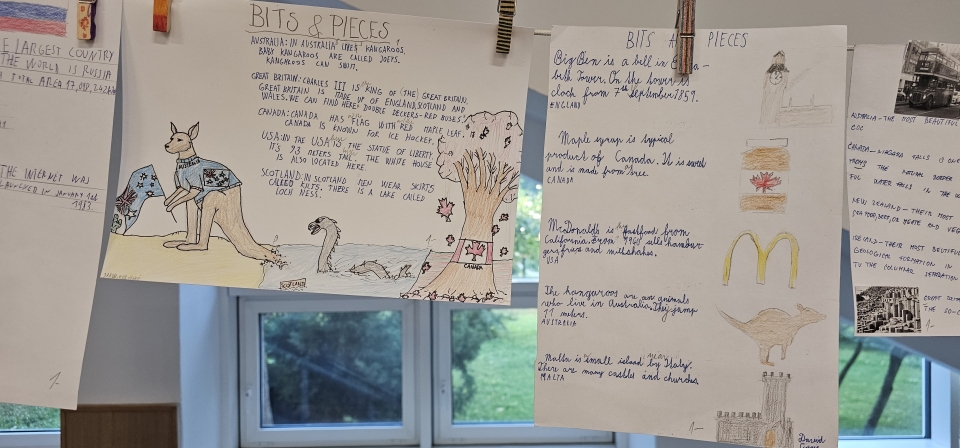 E LARGEST COUNTRY
THE WORLD IS RUSSIA
TOTAL AREA 17,
THE WICKET WAS
IN JANUARY 1st
1983.
1-
BITS & PIECES
AUSTRALIA: IN AUSTRALIA LIVES KANGAROOS.
BABY KANGAROOS ARE CALLED JOEYS.
KANGAROOS CAN SWIT.
GREAT BRITAIN: CHARLES III IS KING OF (THE) GREAT BRITAIN.
GREAT BRITAIN IS MADE UP OF ENGLAND, SCOTLAND AND
WALES. WE CAN FIND HERE DOUBLE DECKERS-RED BUSES.
CANADA: CANADA HAS FLAG WITH RED MAPLE LEAF.
CANADA IS KNOWN FOR ICE HOCKEY.
USA: IN THE USA IS THE STATUE OF LIBERTY.
IT'S 93 METERS TALL. THE WHITE HOUSE
IS ALSO LOCATED HERE.
SCOTLAND: IN SCOTLAND MEN WEAR SKIRTS
CALLED KILTS. THERE IS A LAKE CALLED
LOCH NESS.
AUSTRALIA
SCOTLAND
CANADA
1-
BITS A PIECES
Big Ben is a bell in
beth Tower. On the tower is
clock from 7th September 1859.
ENGLAND
Maple syrup is typical
product of Canada. It is sweet
and is made from tree.
CANADA
McDonalds is fastfood from
California. From 1960 sells hambur
gers, fries and milkshakes.
USA
The kangaroos are an animals
who live in Australia. They jump
11 meters.
AUSTRALIA
Malta is small island near by Italy.
There are many castles and churches.
MALTA
1-
David
AUSTRALIA-THE MOST BEAUTIFUL
CANADA-NIAGARA FALLS IS
FROM THE NATURAL BORDER
FUL WATER FALLS IN THE
NEW ZEALAND-THEIR MOST
SEA FOOD, BEEF, OR MEATE AND VEG
IRELAND-THEIR MOST BEUTIFUL
GEOLOGICAL FORMATION IN
TO THE COLUMNAR SEPARATION
GREAT
THE SO-C
1-